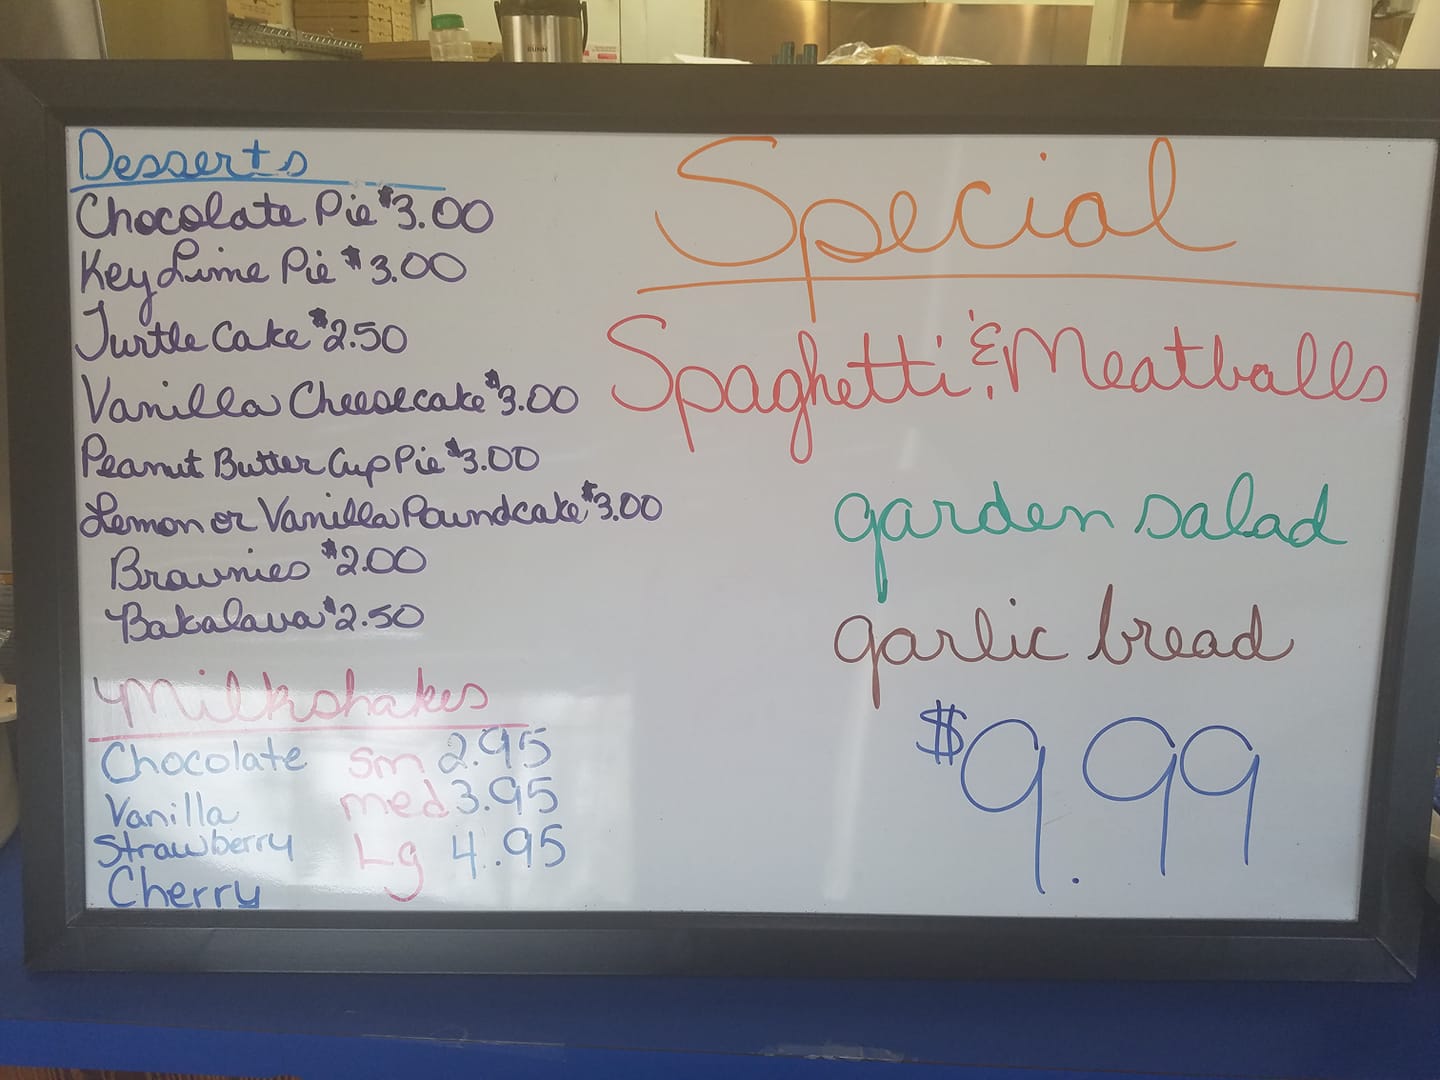 BUNN
Desserts
Chocolate Pie $3.00
Key Lime Pie $3.00
Turtle Cake $2.50
Vanilla Cheesecake $3.00
Peanut Butter Cup Pie $3.00
Lemon or Vanilla Poundcake $3.00
Brownies $2.00
Bakalava $2.50
Milkshakes
Chocolate sm 2.95
Vanilla med 3.95
Strawberry Lg 4.95
Cherry
Special
Spaghetti & Meatballs
garden salad
garlic bread
$9.99